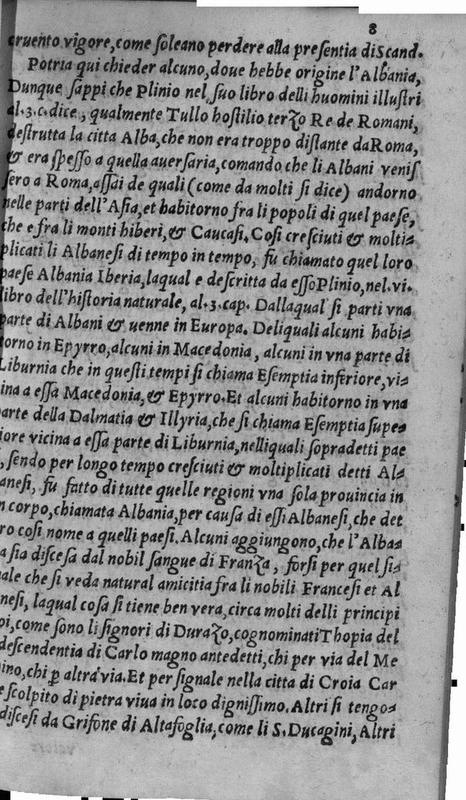 8
cruento vigore, come ſoleano perdere alla preſentia di Scand.
Potria qui chieder alcuno, doue hebbe origine l'Albania,
Dunque ſappi che Plinio nel ſuo libro delli huomini illuſtri
al.3.c.dice, qualmente Tullo hoſtilio terzo Re de Romani,
deſtrutta la citta Alba, che non era troppo diſtante da Roma,
& era ſpeſſo a quella auerſaria, comando che li Albani veniſ
ſero a Roma, aſſai de quali (come da molti ſi dice) andorno
nelle parti dell'Aſia, et habitorno fra li popoli di quel paeſe,
che e fra li monti hiberi, & Caucaſi. Coſi creſciuti & molti-
plicati li Albaneſi di tempo in tempo, fu chiamato quel loro
paeſe Albania Iberia, laqual e deſcritta da eſſo Plinio, nel.vi.
libro dell'hiſtoria naturale, al.3.cap. Dallaqual ſi parti vna
parte di Albani & uenne in Europa. Deliquali alcuni habi-
torno in Epyrro, alcuni in Macedonia, alcuni in vna parte di
Liburnia che in queſti tempi ſi chiama Eſemptia inferiore, vi-
ina a eſſa Macedonia, & Epyrro. Et alcuni habitorno in vna
arte della Dalmatia & Illyria, che ſi chiama Eſemptia ſupe-
iore vicina a eſſa parte di Liburnia, nelliquali ſopradetti pae
, ſendo per longo tempo creſciuti & moltiplicati detti Al-
aneſi, fu fatto di tutte quelle regioni vna ſola prouincia in
n corpo, chiamata Albania, per cauſa di eſſi Albaneſi, che det
ro coſi nome a quelli paeſi. Alcuni aggiungono, che l'Alba-
a ſia diſceſa dal nobil ſangue di Franza, forſi per quel ſi-
ale che ſi veda natural amicitia fra li nobili Franceſi et Al
neſi, laqual coſa ſi tiene ben vera, circa molti delli principi
pi, come ſono li ſignori di Durazo, cognominati Thopia del
deſcendentia di Carlo magno antedetti, chi per via del Me
ino, chi ꝑ altra via. Et per ſignale nella citta di Croia Car
eſcolpito di pietra viua in loco digniſſimo. Altri ſi tengo-
diſceſi da Grifone di Altafoglia, come li S. Ducagini, Altri